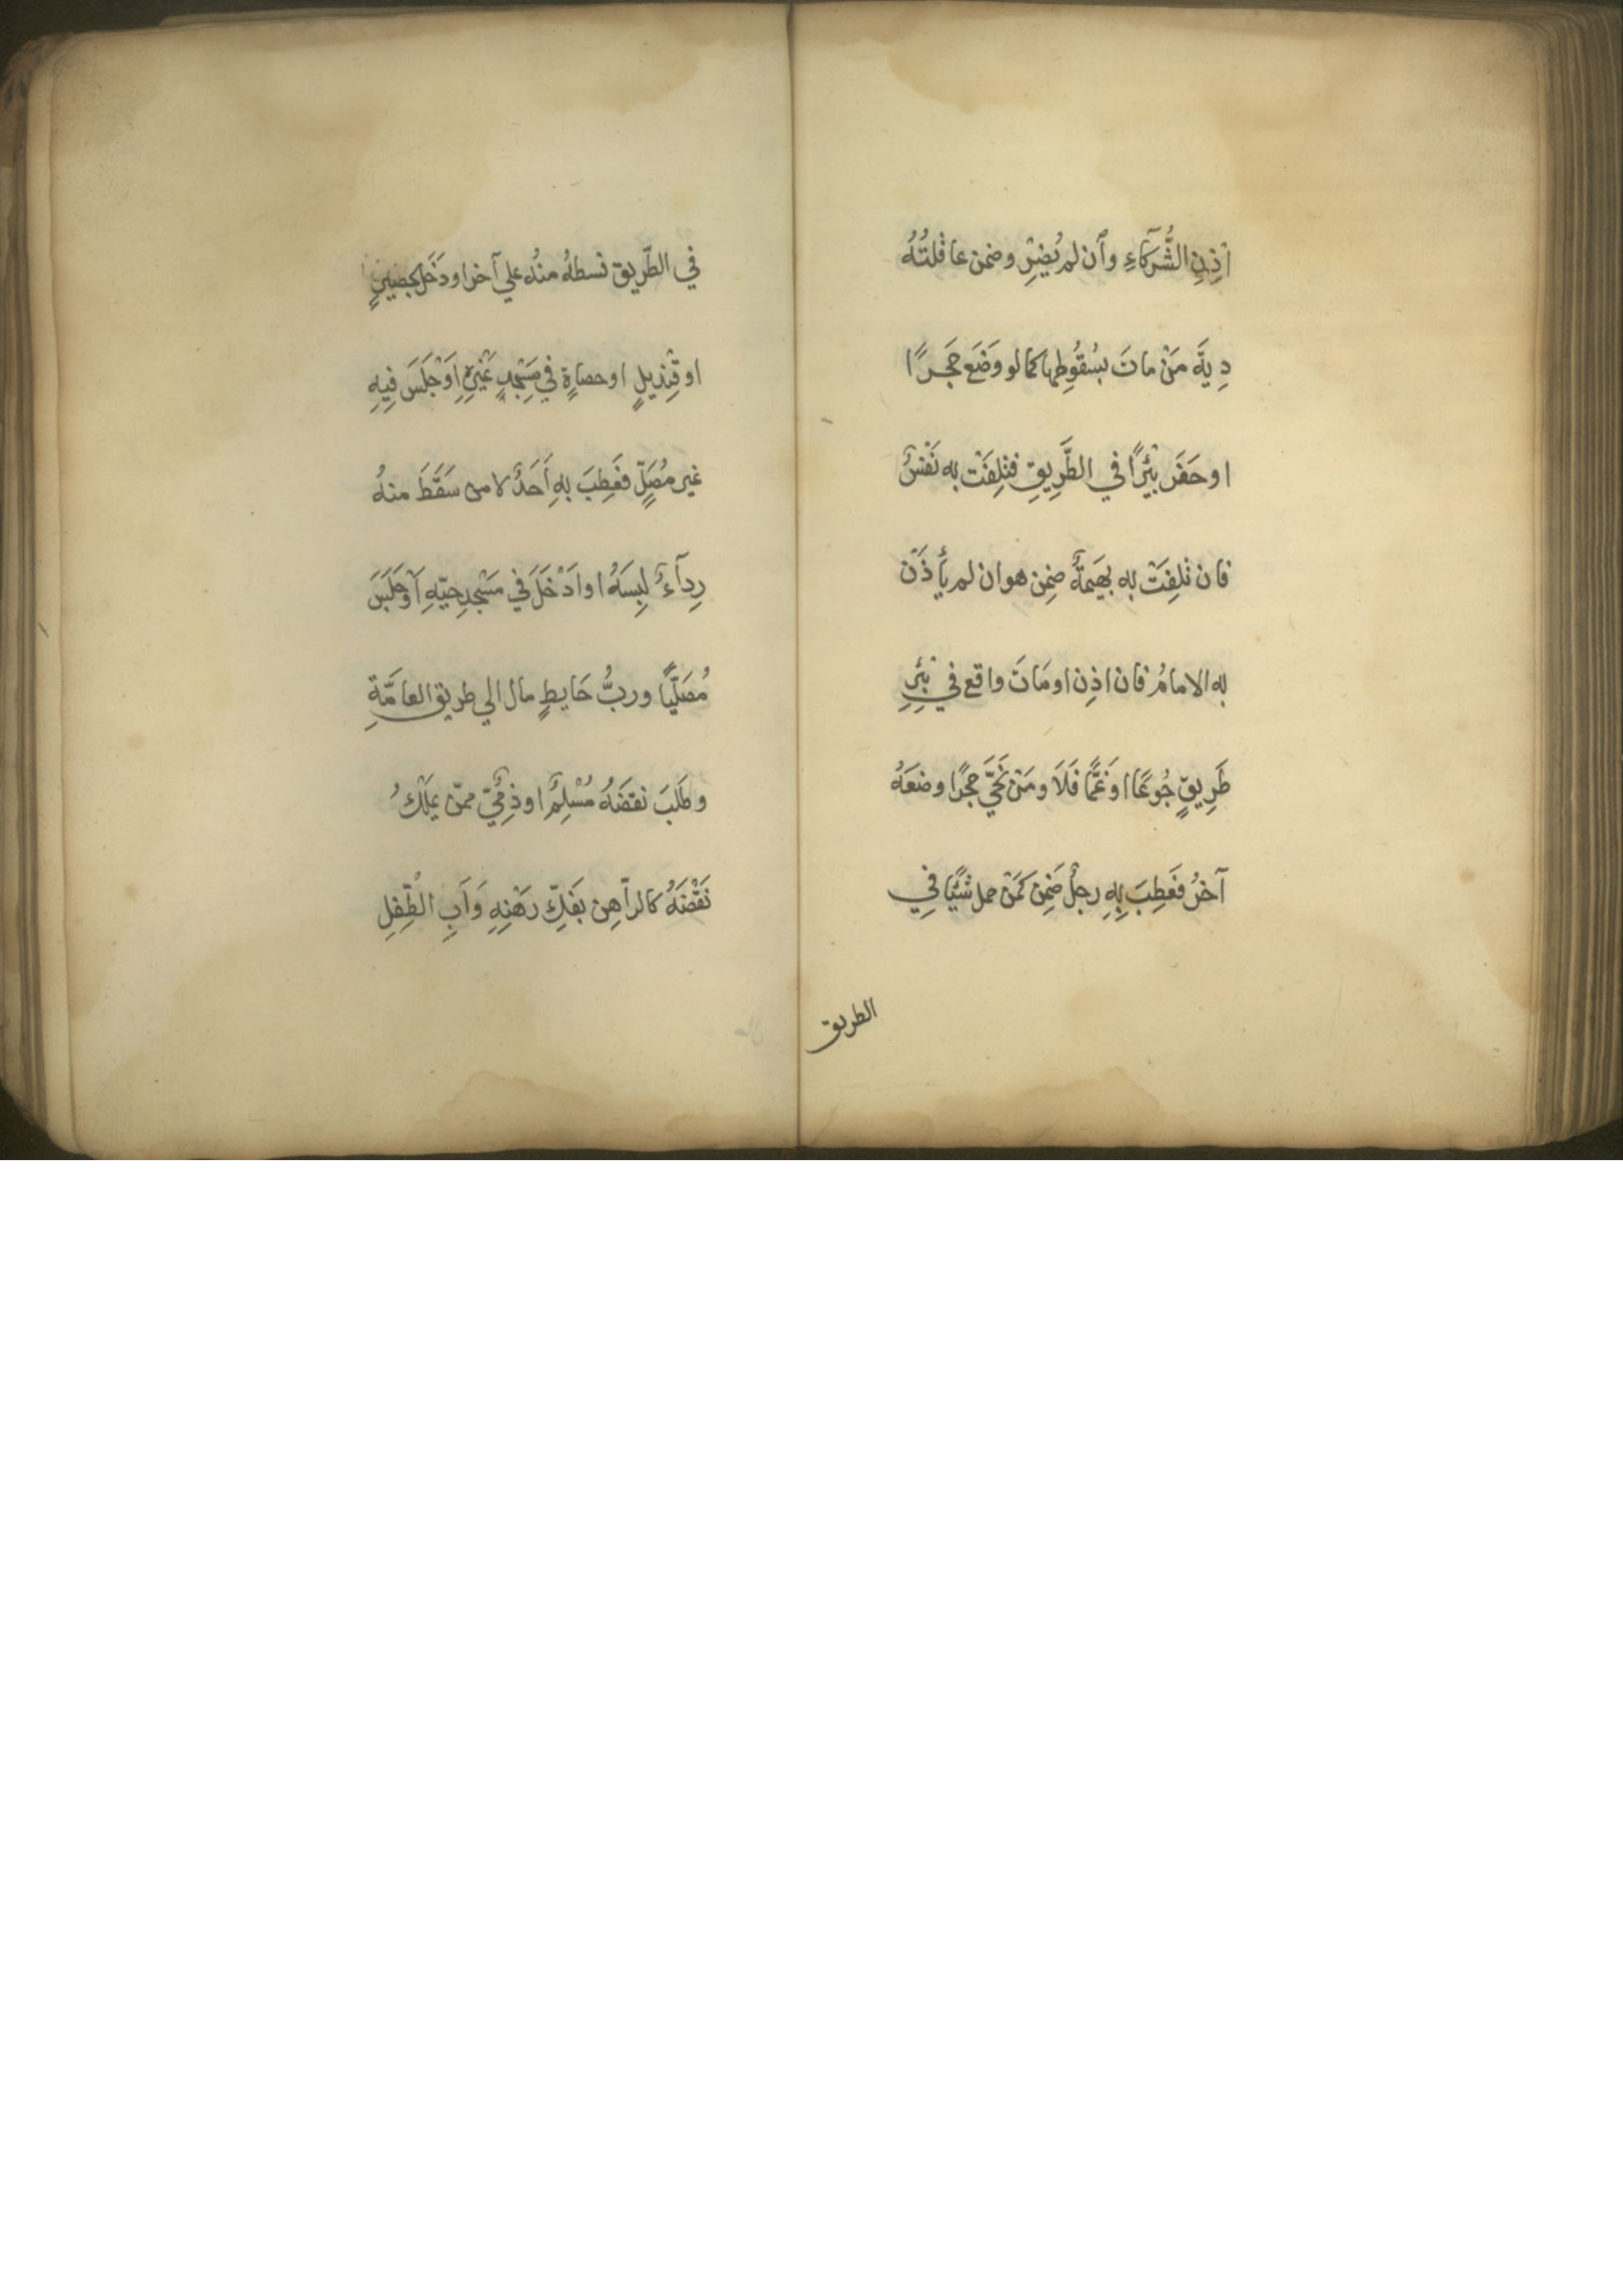 اذِنِ الشُّرَكَآءِ وَأن لم يُضِرِّ وضمن عاقلتُهُ
دِيَّةَ مَنْ ماتَ بسُقُوطِها كما لو وَضَعَ حَجَرًا
او حَفَرَ بِئْرًا في الطَّرِيقِ فتلِفَتْ به نَفْسٌ
فان تلِفَتْ به بهَيمةٌ ضمِن هو ان لم يَأْذَنْ
به الامامُ فان اذِن او مَاتَ واقع في بِئْرِ
طَرِيقٍ جُوعًا اوَ غَمًّا فَلاَ ومَنْ نَحَّي حجَرًا وضعَهُ
آخرُ فعَطِبَ بِهِ رجلٌ ضَمِنَ كمَنْ حمل شَيْئًا في
الطريق
في الطّريق فسطهُ منهُ علي آخر او دَخَل بحصِيرٍ
او قِنْذِيلٍ او حصاةٍ في مَسْجِدٍ غَيْرِهِ اَوْ جَلَسَ فِيهِ
غير مُصَلٍّ فعَطِبَ بهِ اَحَدٌ لا من سَقَطَ منهُ
رِدآءٌ لبِسَهُ او ادْخَلَ في مَسْجِدِ حيّهِ اَوْ جَلَسَ
مُصَلِّيًا وربُّ حَايطٍ مال الي طريق العامَّةِ
وطَلبَ نقضَهُ مُسْلِمٌ او ذِمِّيٌّ ممّن يملكُ
نَقْضَهُ كالرَّاهِن بفَكِّ رَهْنِهِ وَاَبِ الطِّفِلِ